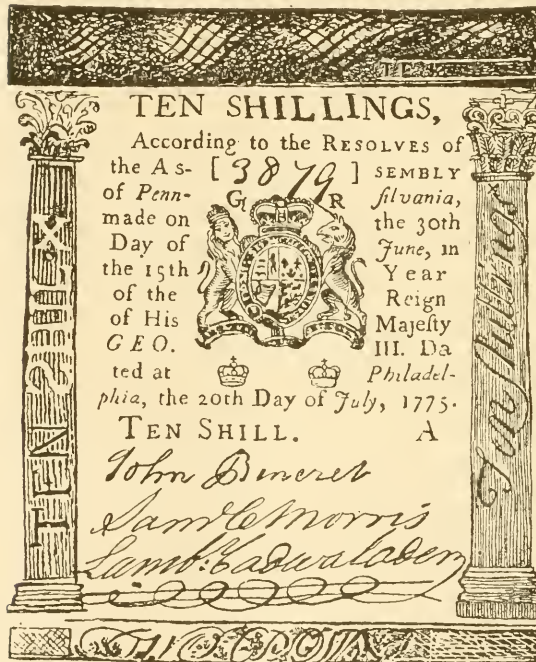 TEN SHILLINGS,
According to the RESOLVES of
the As- [ 3879 ] SEMBLY
of Penn- G R ſilvania,
made on the 30th
Day of June, in
the 15th Year
of the Reign
of His Majeſty
GEO. III. Da
ted at Philadel-
phia, the 20th Day of July, 1775.
TEN SHILL. A
Saml C Morris
Lambt. Cadwalader
Ten ſhillings